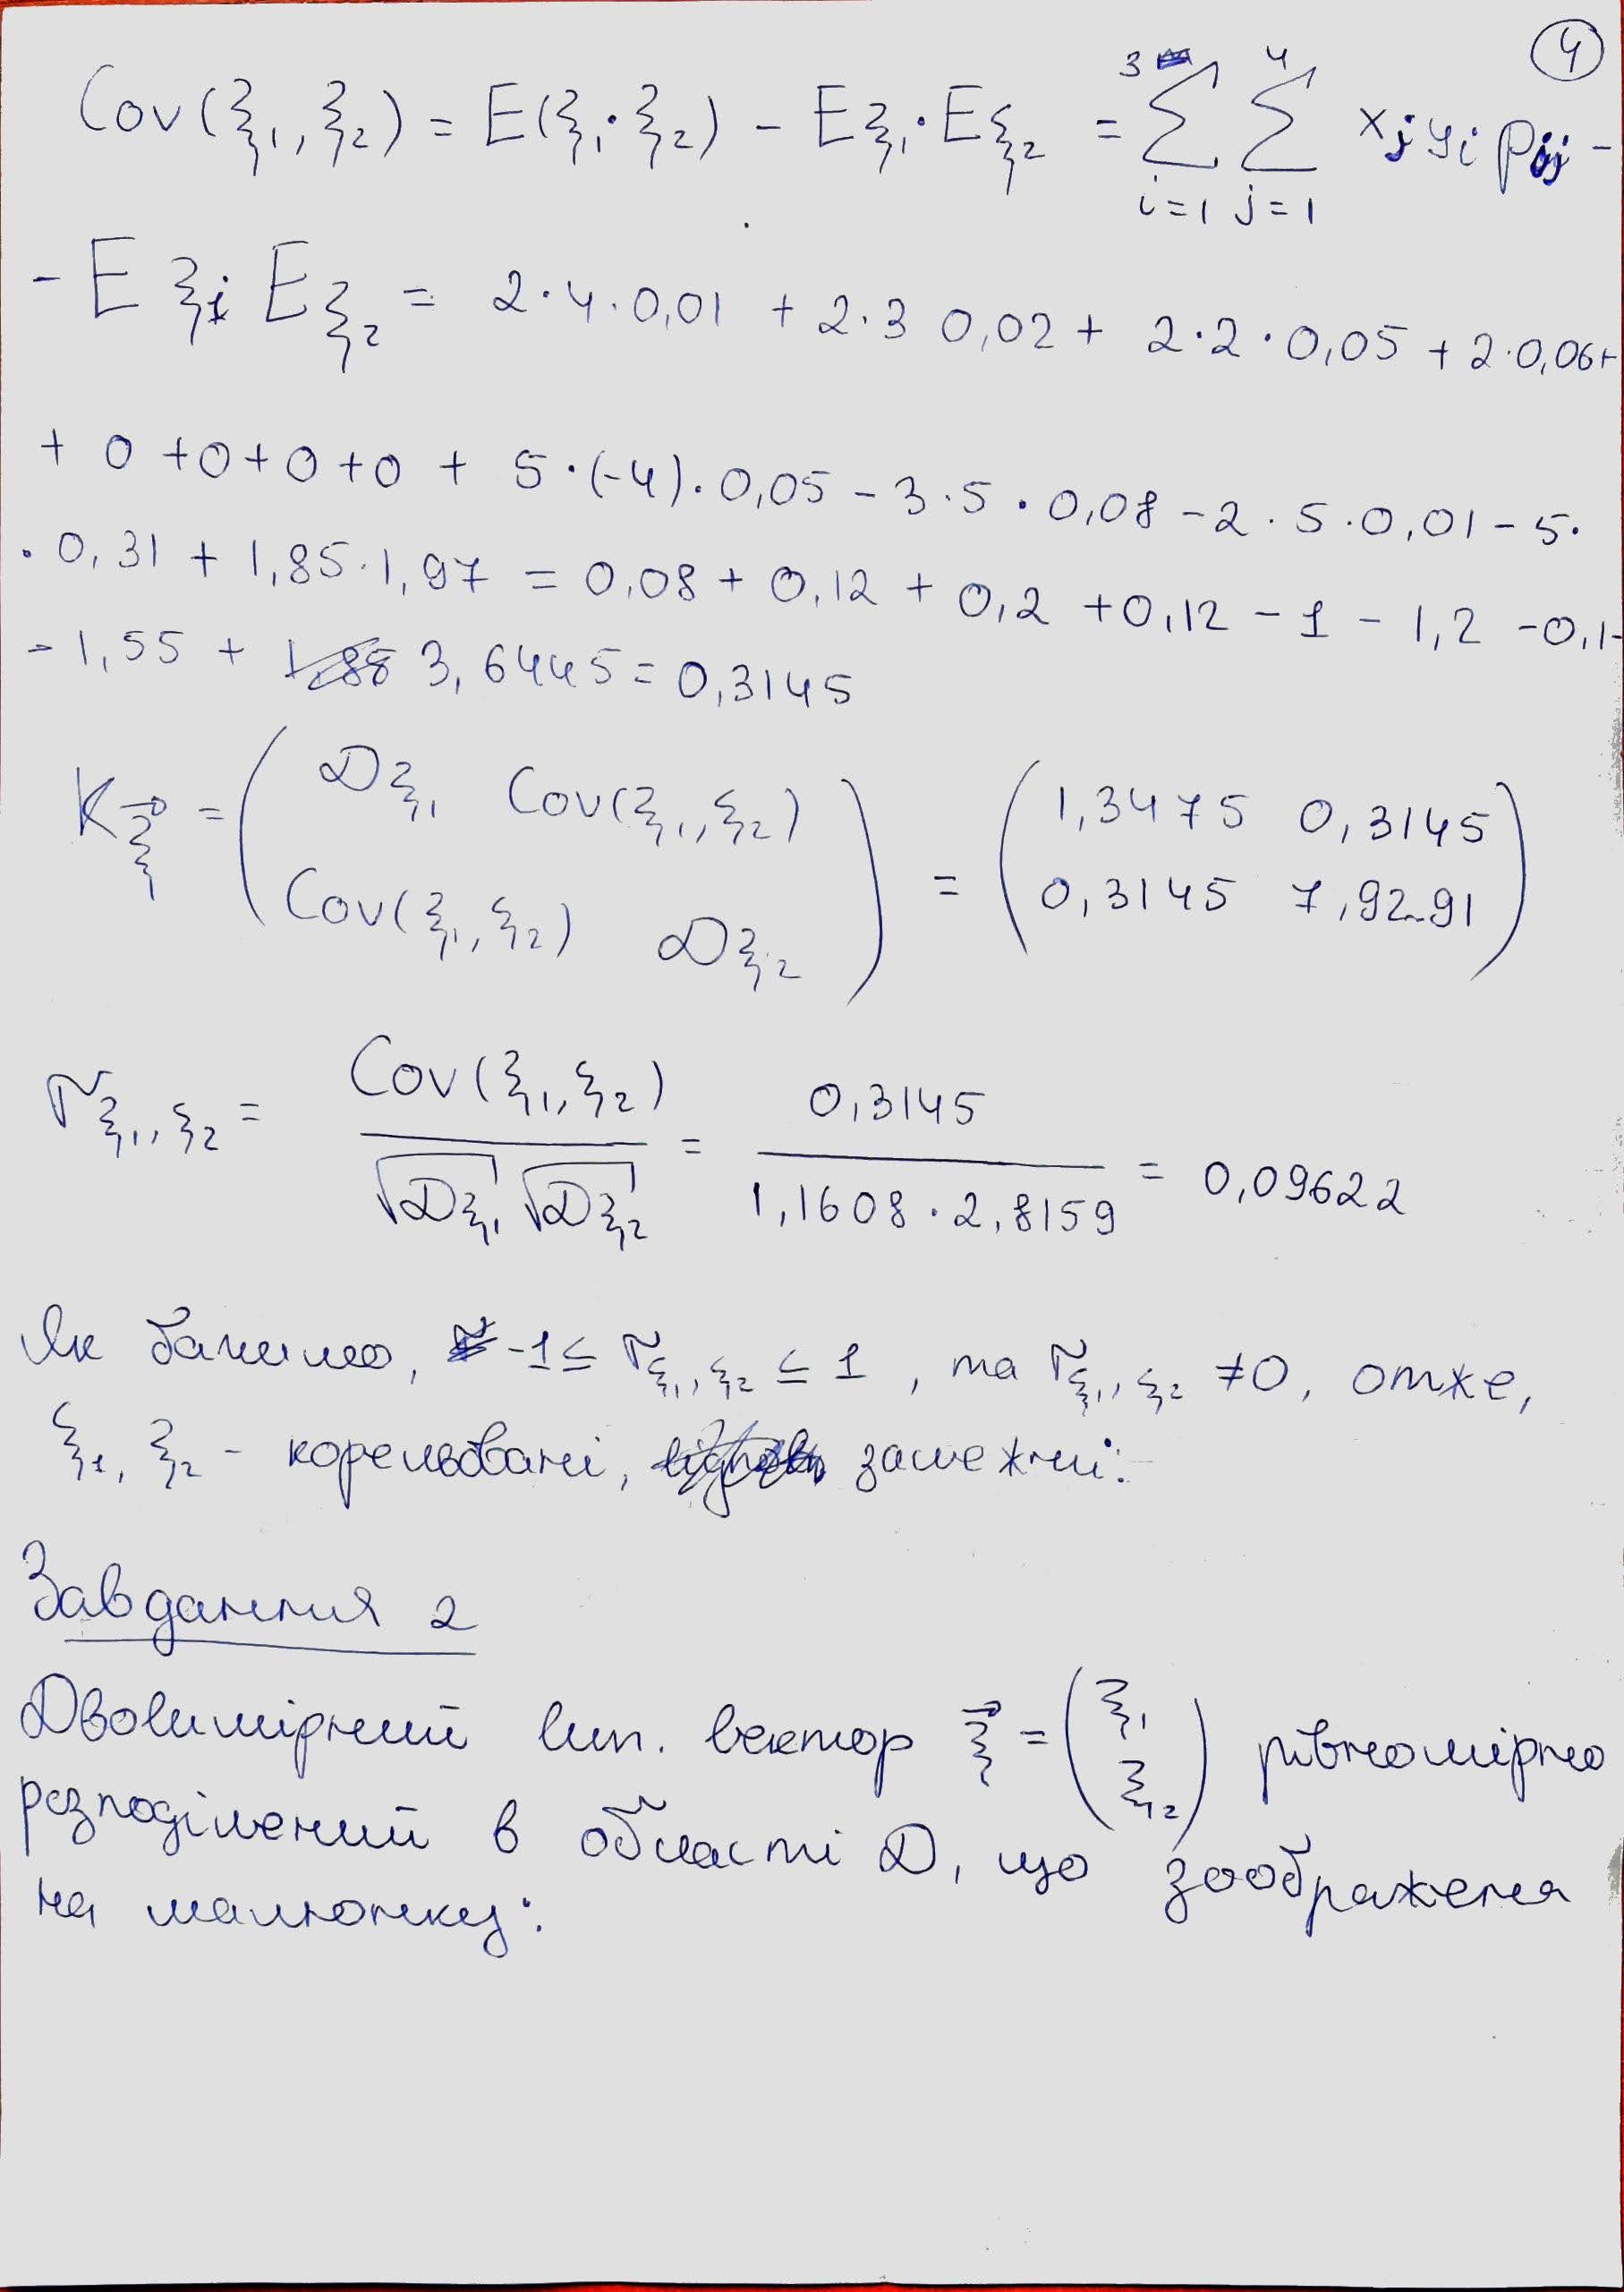 4
Cov(ξ₁, ξ₂) = E(ξ₁·ξ₂) - Eξ₁·Eξ₂ = ³∑ᵢ₌₁ ⁴∑ⱼ₌₁ xⱼ yᵢ pᵢⱼ -
- Eξ₁ Eξ₂ = 2·4·0,01 + 2·3 0,02 + 2·2·0,05 + 2·0,06+
+ 0 +0+0+0 + 5·(-4)·0,05 - 3·5·0,08 - 2·5·0,01 - 5·
·0,31 + 1,85·1,97 = 0,08 + 0,12 + 0,2 +0,12 - 1 - 1,2 -0,1-
- 1,55 + 3,6445 = 0,3145
K ξ⃗ = ( Dξ₁ Cov(ξ₁, ξ₂) ) = ( 1,3475 0,3145 )
( Cov(ξ₁, ξ₂) Dξ₂ ) ( 0,3145 7,9291 )
r ξ₁, ξ₂ = Cov(ξ₁, ξ₂) / √Dξ₁ √Dξ₂ = 0,3145 / 1,1608·2,8159 = 0,09622
Як бачимо, -1 ≤ r ξ₁, ξ₂ ≤ 1, та r ξ₁, ξ₂ ≠0, отже,
ξ₁, ξ₂ - корельовані, залежні.
Завдання 2
Двовимірний вип. вектор ξ⃗ = (ξ₁ ξ₂) рівномірно
розподілений в області D, що зоображена
на малюнку: